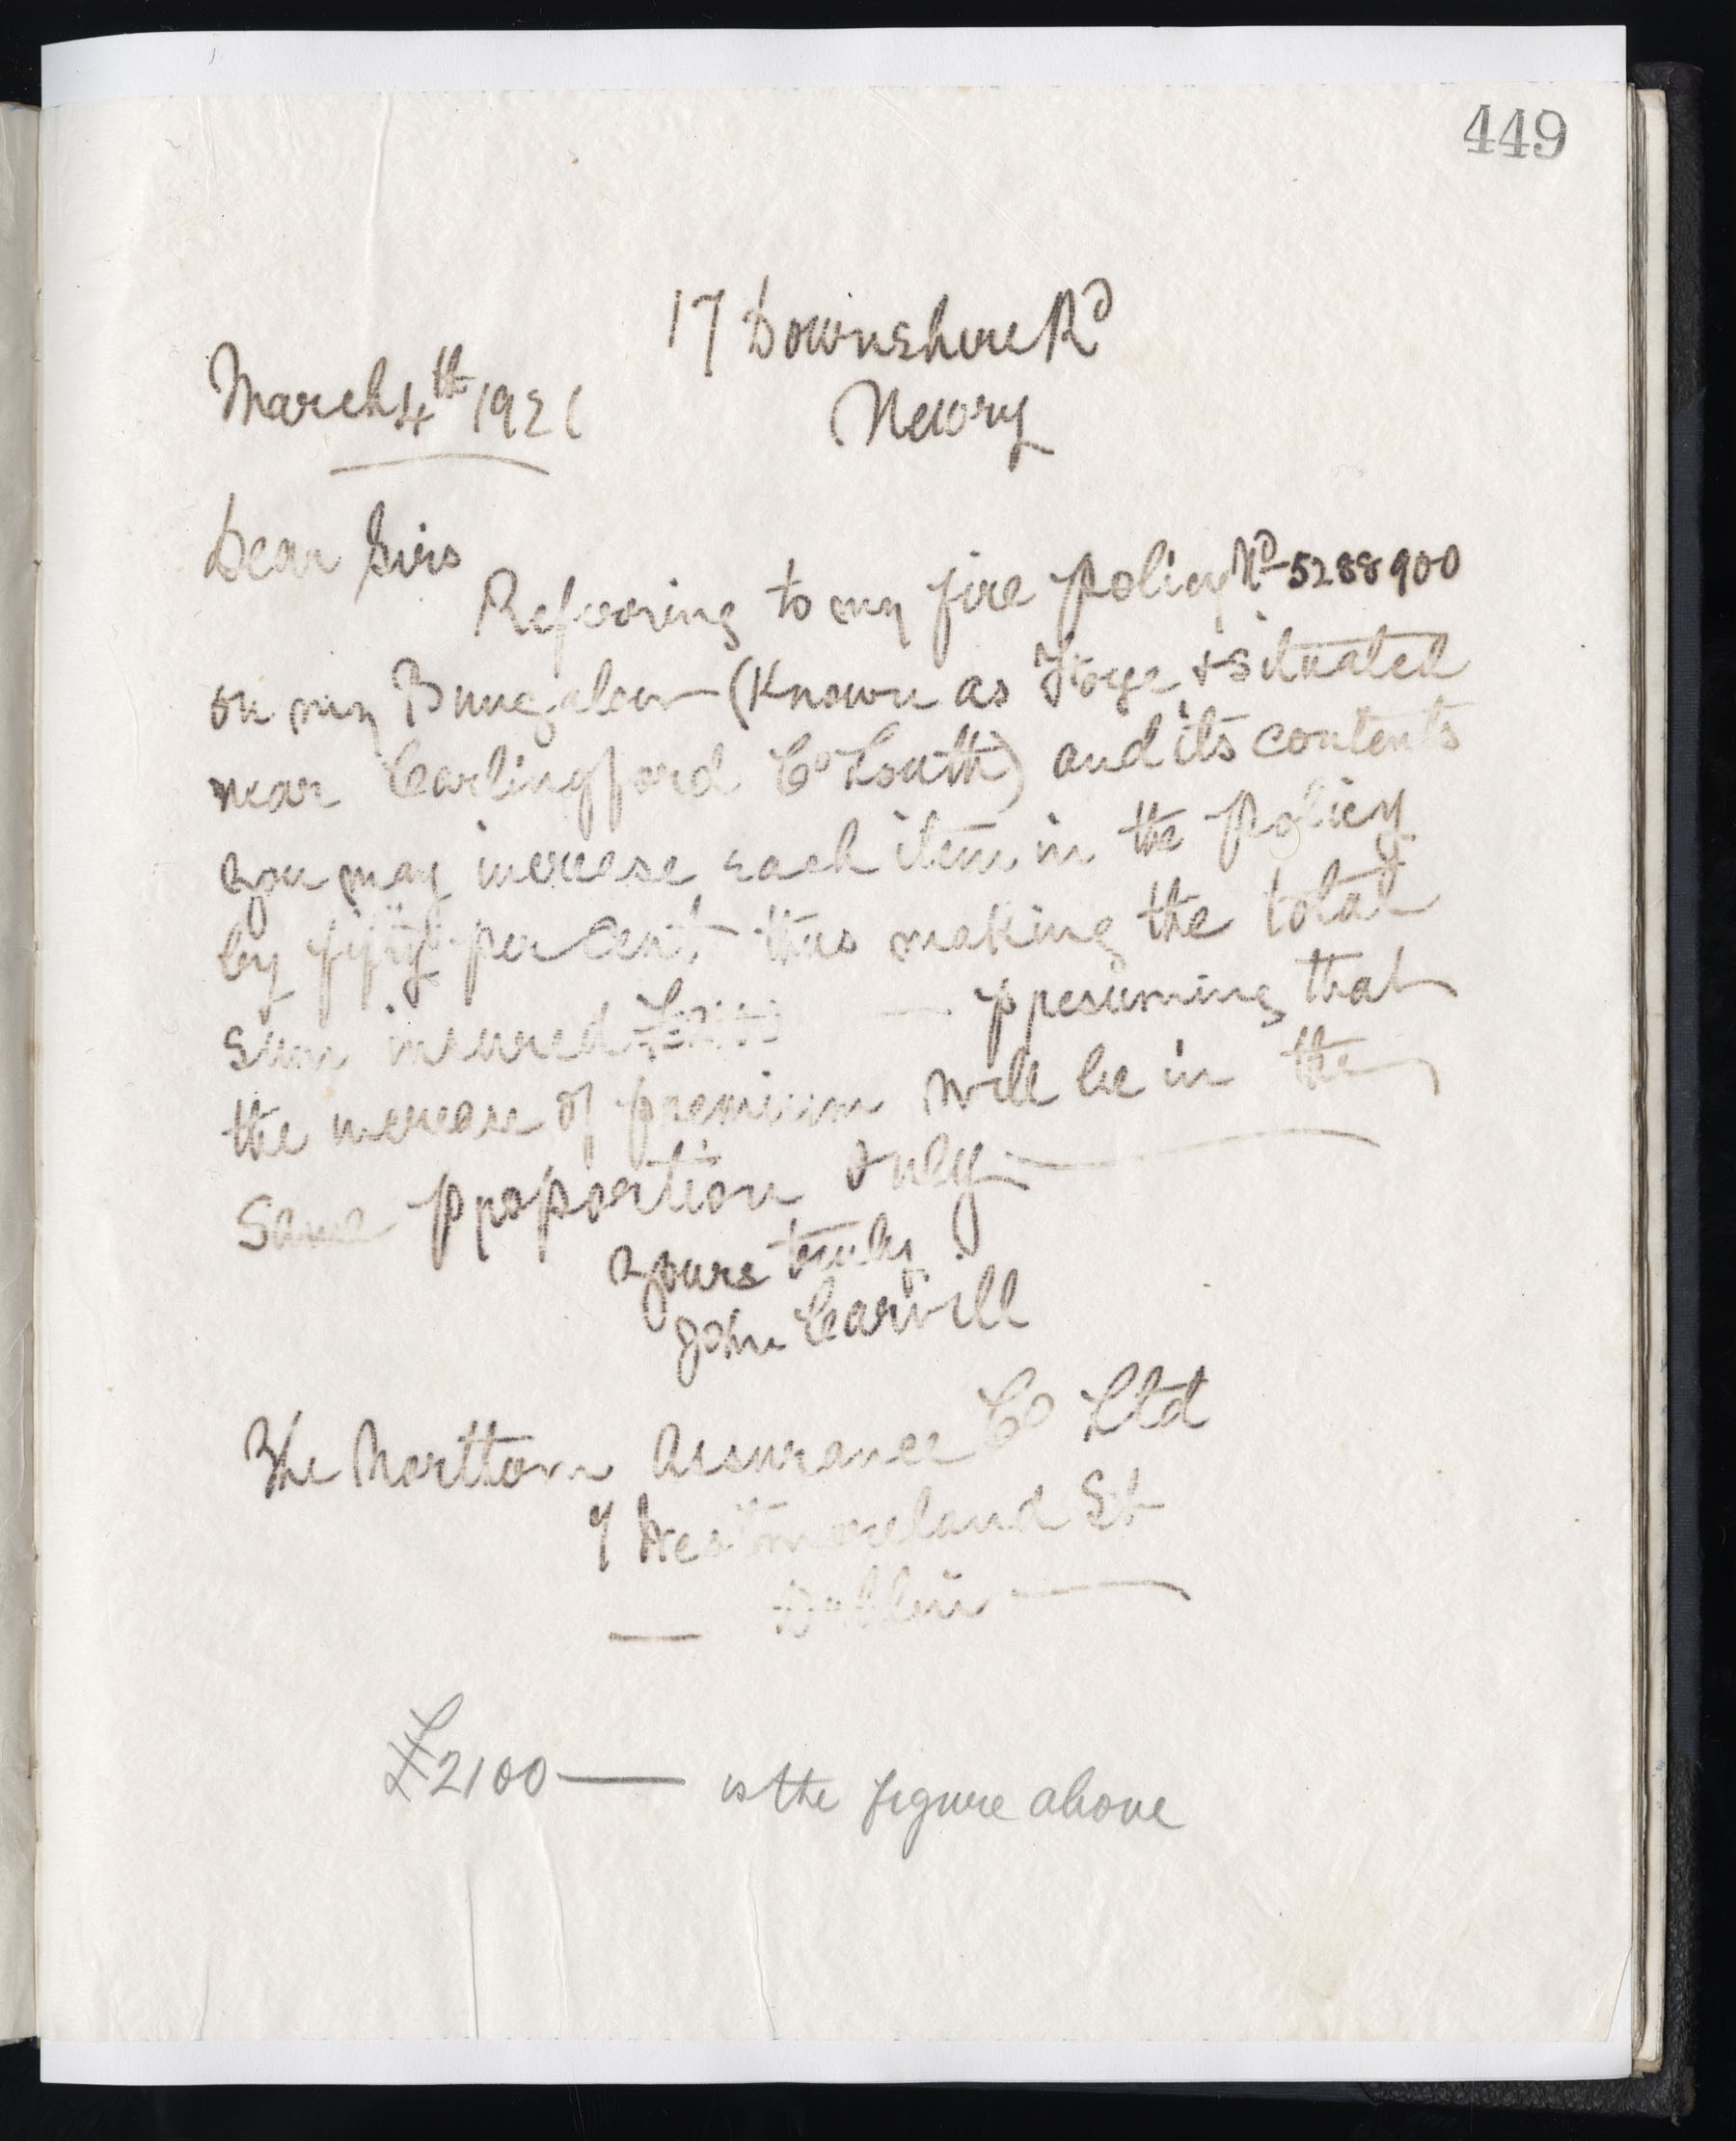 449
17 Downshire Rd
March 4th 1921
Newry
Dear Sirs
Referring to my fire policy No 5288900
on my Bungalow (Known as & situated
near Carlingford Co Louth) and its contents
you may increase each item in the policy
by fifty per cent thus making the total
sum insured £2100 — presuming that
the increase of premium will be in the
same proportion only —
Yours truly
John Carvill
The Northern Assurance Co Ltd
Westmoreland St
— Dublin —
£2100 — is the figure above